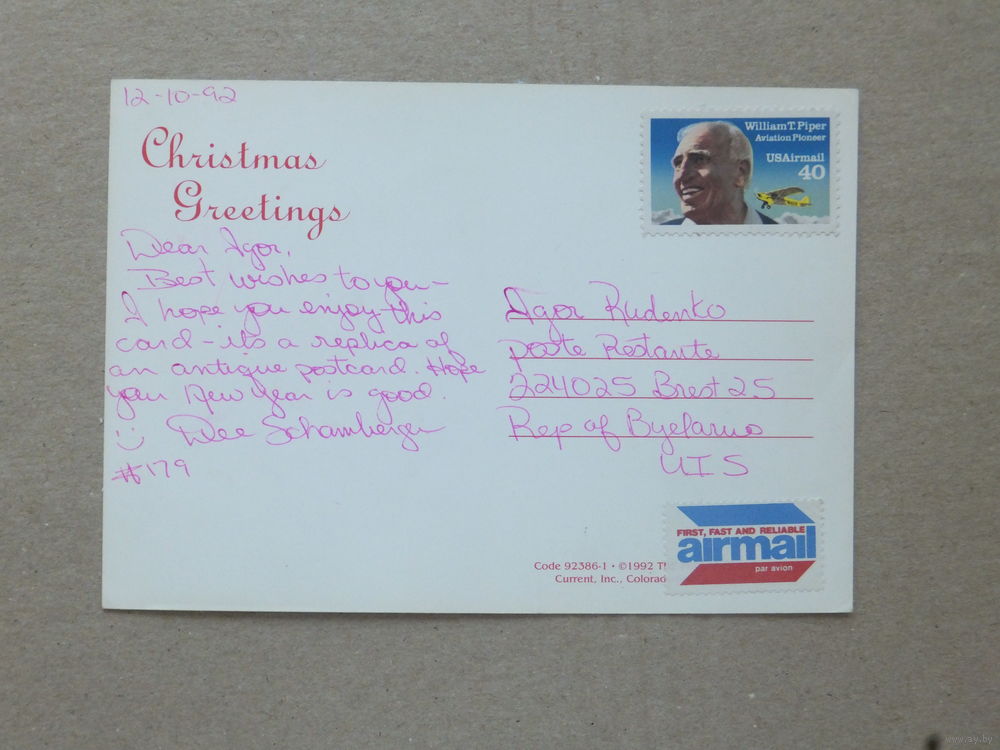 12-10-92
Christmas
Greetings
Dear Igor,
Best wishes to you-
I hope you enjoy this
card - its a replica of
an antique postcard. Hope
your New Year is good.
:) Dee Schamberger
#179
William T. Piper
Aviation Pioneer
USAirmail
40
Igor Rudenko
poste Restante
224025 Brest 25
Rep of Byelarus
UIS
FIRST, FAST AND RELIABLE
airmail
par avion
Code 92386-1 • ©1992 Th
Current, Inc., Colorad
www.ay.by